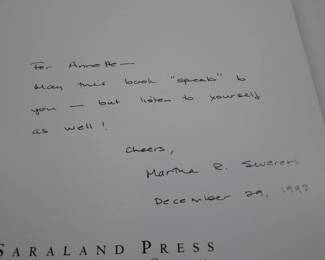 For Annette—
May this book "speak" to
you — but listen to yourself
as well!
Cheers,
Martha R.
December 29, 199
SARALAND PRESS